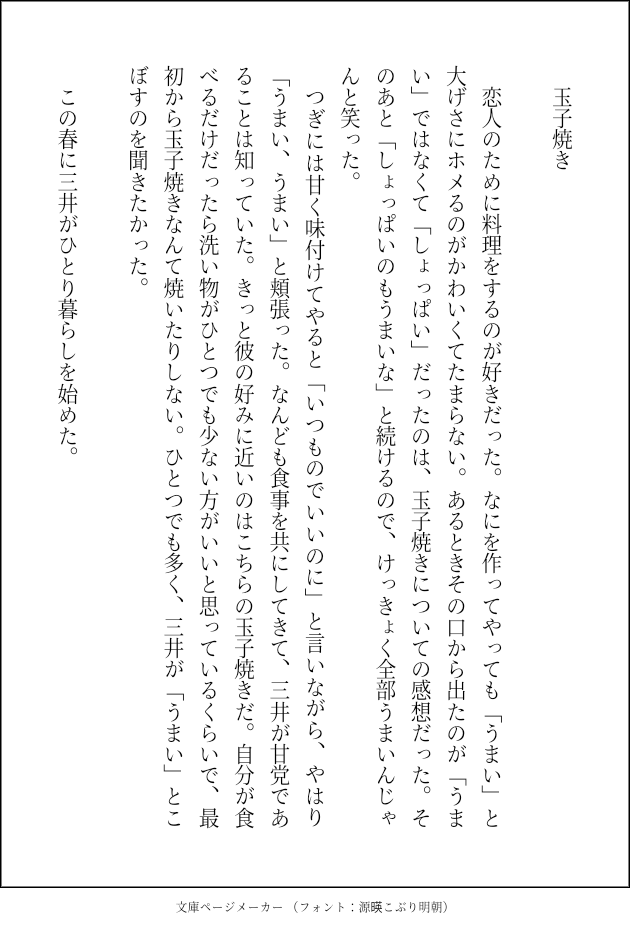 玉子焼き
　恋人のために料理をするのが好きだった。なにを作ってやっても「うまい」と
大げさにホメるのがかわいくてたまらない。あるときその口から出たのが「うま
い」ではなくて「しょっぱい」だったのは、玉子焼きについての感想だった。そ
のあと「しょっぱいのもうまいな」と続けるので、けっきょく全部うまいんじゃ
んと笑った。
　つぎには甘く味付けてやると「いつものでいいのに」と言いながら、やはり
「うまい、うまい」と頬張った。なんども食事を共にしてきて、三井が甘党であ
ることは知っていた。きっと彼の好みに近いのはこちらの玉子焼きだ。自分が食
べるだけだったら洗い物がひとつでも少ない方がいいと思っているくらいで、最
初から玉子焼きなんて焼いたりしない。ひとつでも多く、三井が「うまい」とこ
ぼすのを聞きたかった。
　この春に三井がひとり暮らしを始めた。
文庫ページメーカー（フォント：源暎こぶり明朝）